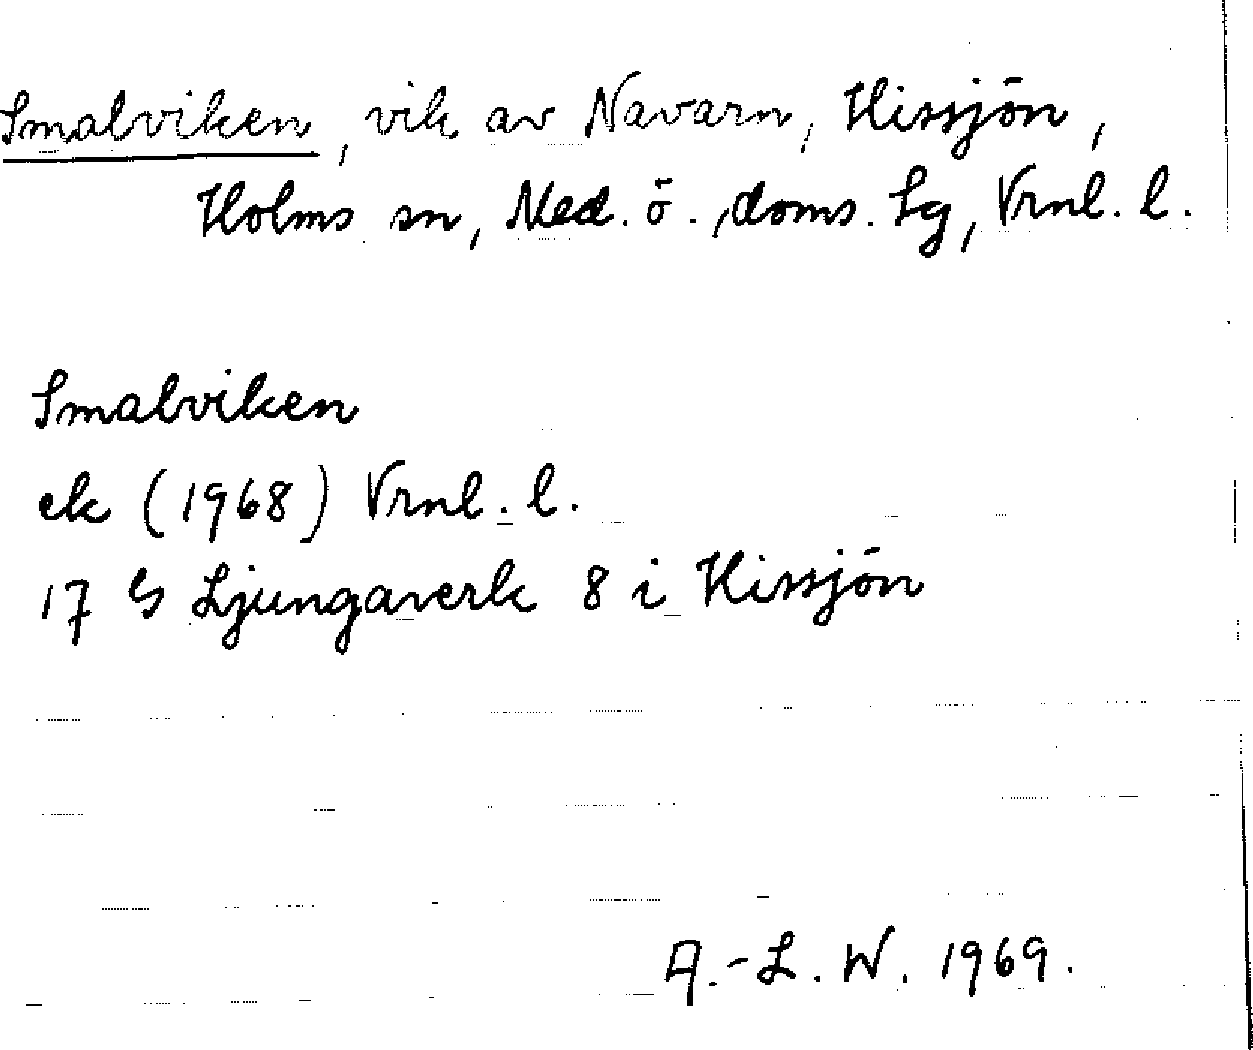 Smalviken, vik av Navarn, Hissjön,
Holms sn, Med. ö., doms. Lg, Vrnl. l.
Smalviken
ek (1968) Vrnl. l.
17 G Ljungaverk 8 i Hissjön
A.-L. W. 1969.